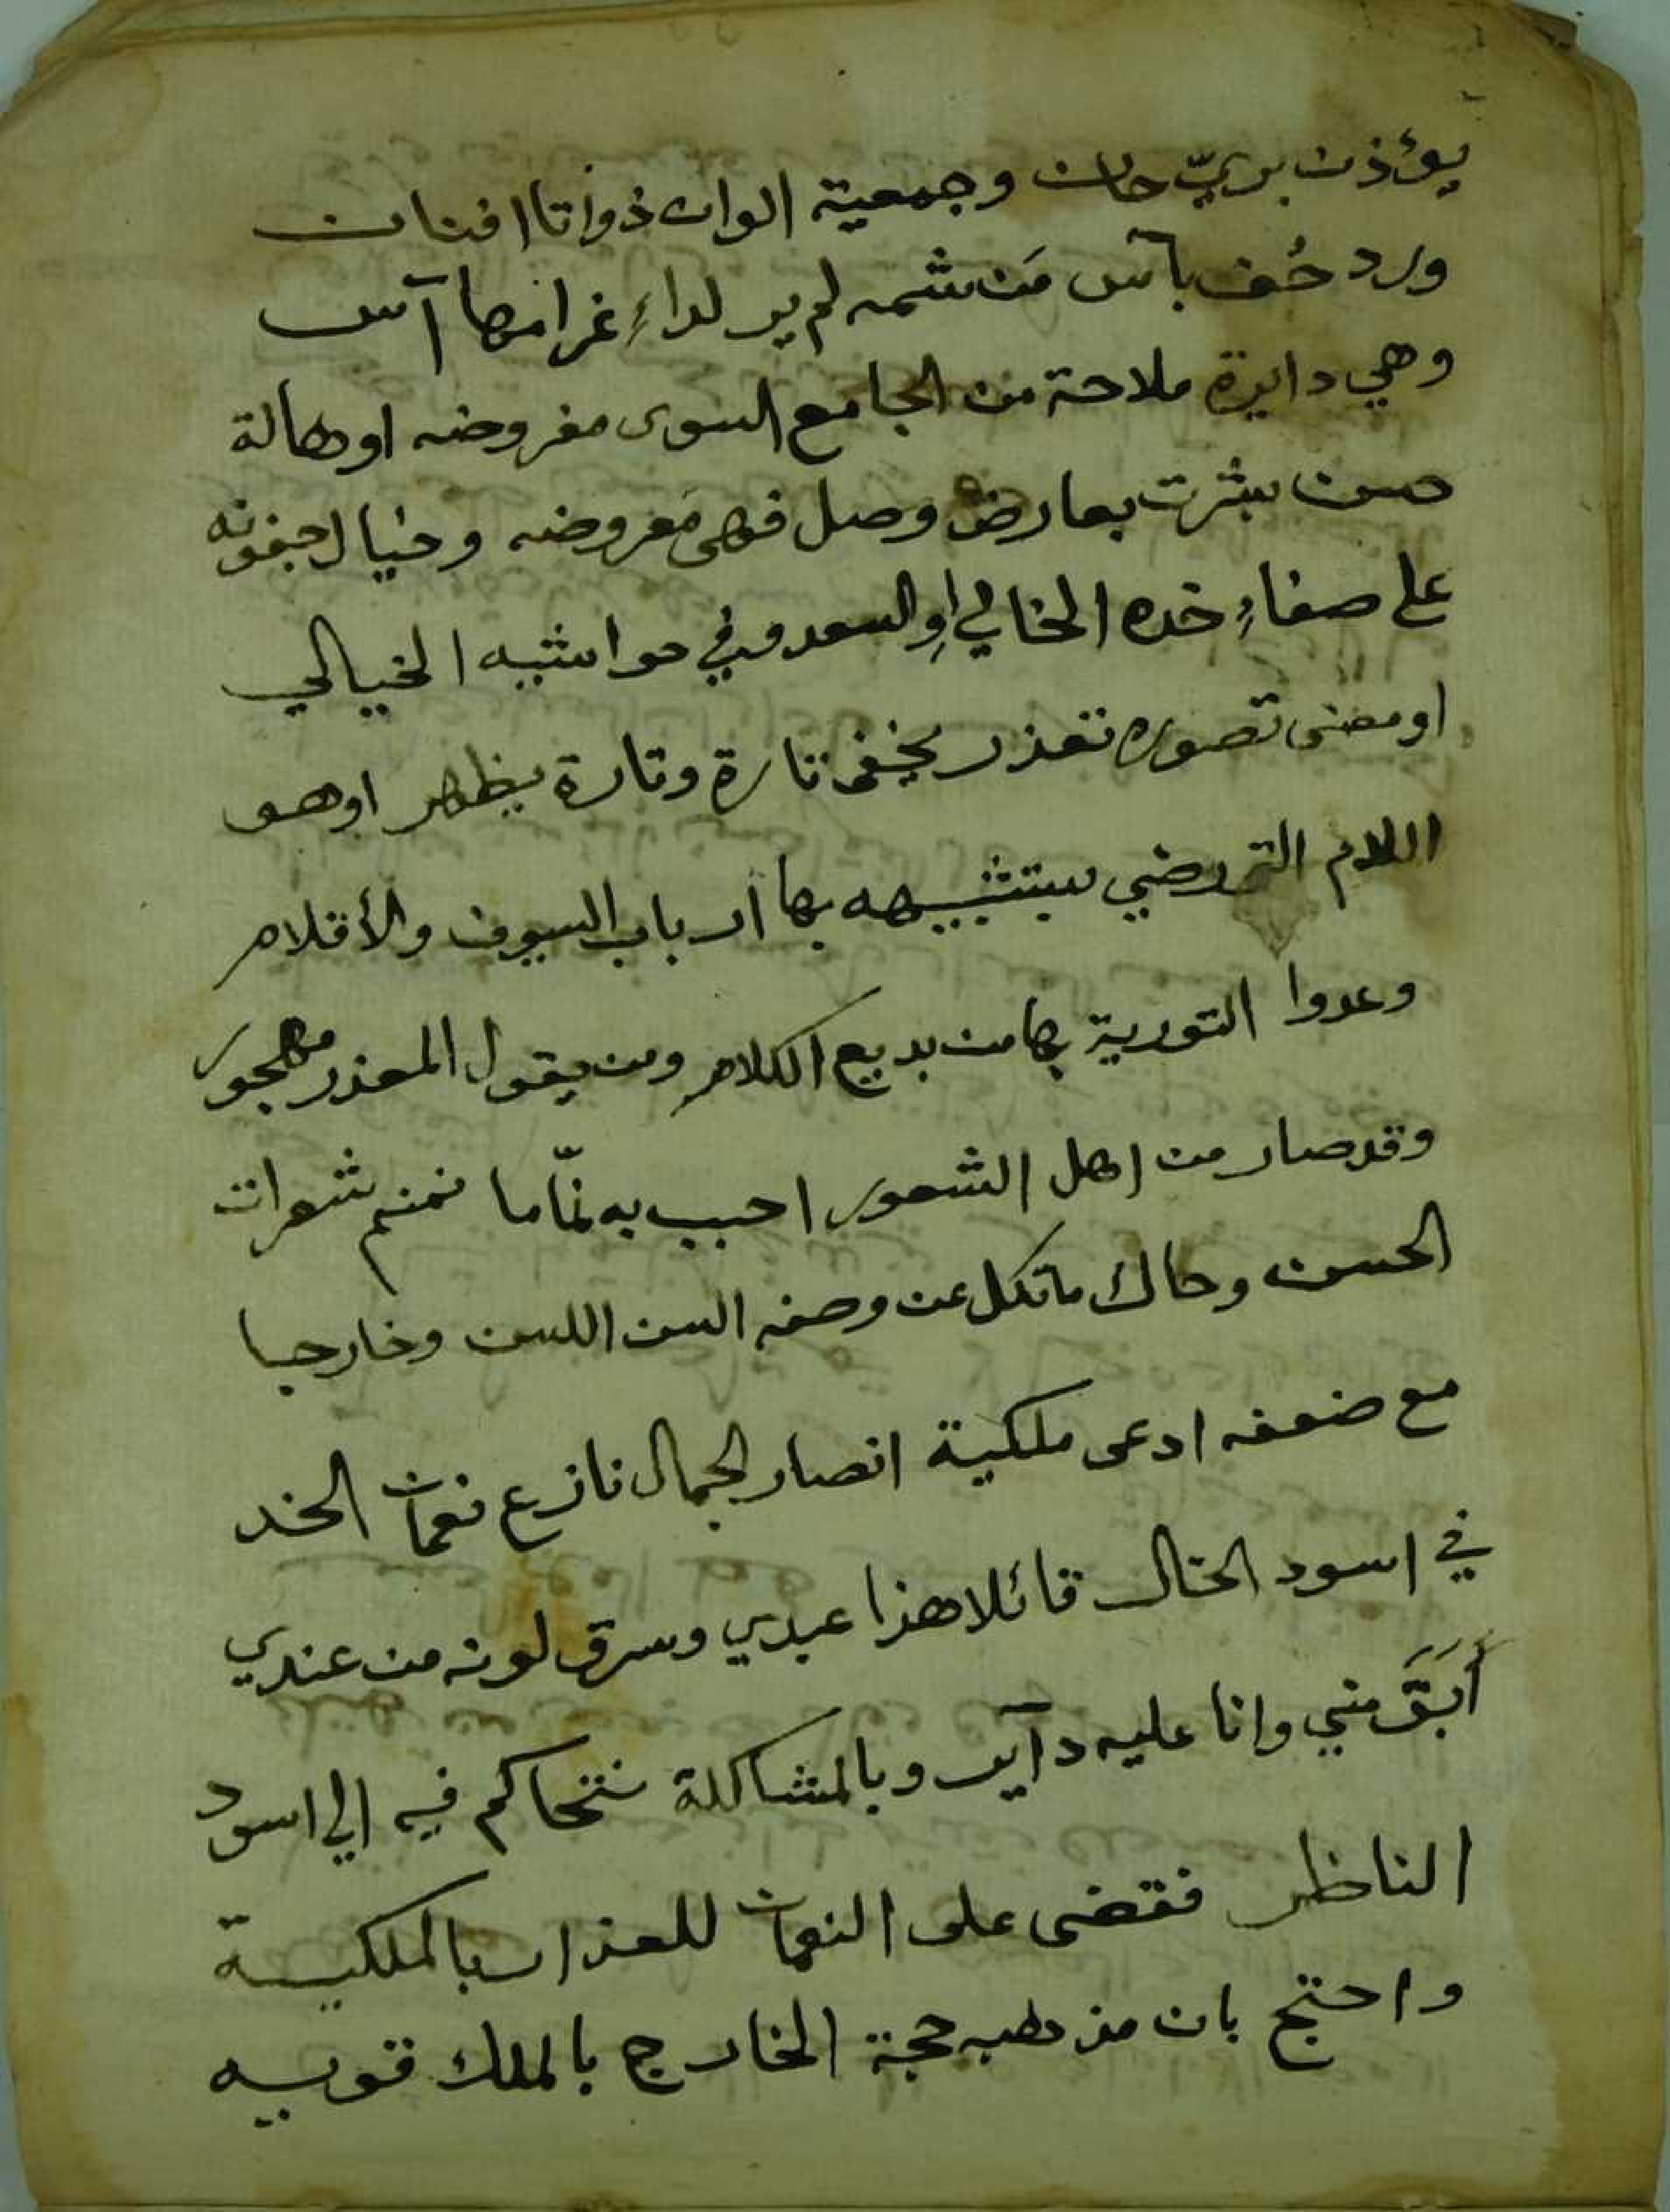 يؤذن بريّ حان وجمعية الوان ذواتا افنان
ورد حُف بآس مَن شمه لم ير لداءِ غرامها آس
وهي دايرة ملاحة من الجامع السوى مفروضه او هالة
حسن بشرت بعارض وصل فهي مَعروضه وخيال جفونه
على صفاءِ خده الخالي او السعد وفي حواشيه الخيالي
او معنى تصوره تعذر يخفى تارة وتارة يظهر او هو
اللام التي رضي بتشبيهه بها ارباب السيوف والأقلام
وعدوا التورية بها من بديع الكلام ومن يقول المعذر مهجور
وقد صار من اهل الشعور احبب به نمّاما نمنم شعرات
الحسن وحاك ما تكل عن وصفه السن اللسن وخارجيا
مع ضعفه ادعى ملكية انصار الجمال نازع نعمان الخد
في اسود الخال قائلا هذا عبدي وسرق لونه من عندي
أَبَقَ مني وانا عليه دآير وبالمشاكلة نتحاكم فيه الى اسود
الناظر فقضى على النعمان للعذار بالملكية
واحتج بان مذهبه حجة الخارج بالملك قويه